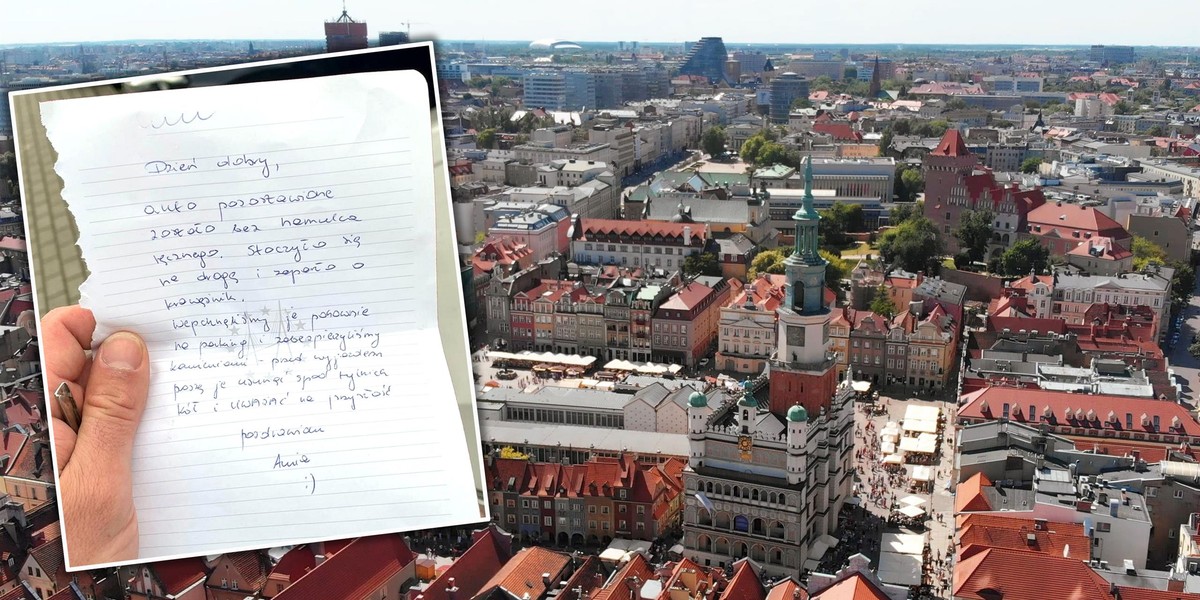 Dzień dobry,
auto pozostawione
zostało bez hamulca
ręcznego. Stoczyło się
na drogę i zaparło o
krawężnik.
Wepchnęliśmy je ponownie
na parking i zabezpieczyliśmy
kamieniami przed wyjazdem
proszę je usunąć spod tylnich
kół i uważać na przyszłość
pozdrawiam
Ania
:)